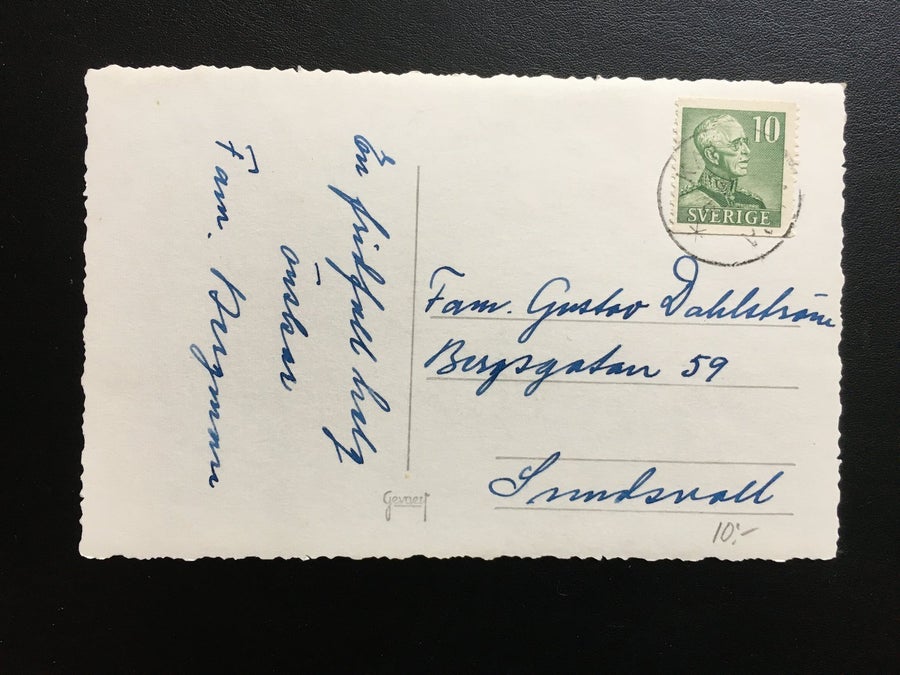 En fridfull helg
önskar
Fam. Bergman
10
SVERIGE
Fam. Gustav Dahlström
Bergsgatan 59
Sundsvall
Gevaert
10:-